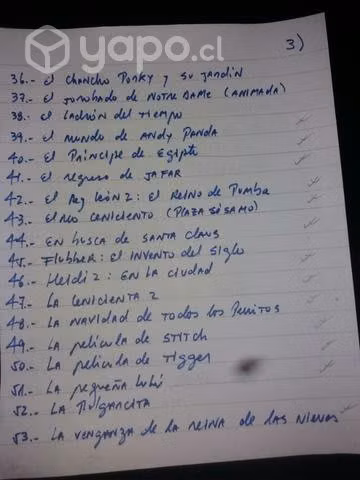 yapo.cl
3)
36.- El Chancho Porky y su jardin
37.- El Jorobado de NOTRE DAME (ANIMADA)
38.- El ladrón del tiempo
39.- El mundo de Andy Panda
40.- El Principe de Egipto
41.- El regreso de JAFAR
42.- El Rey león 2: El Reino de Pumba
43.- El río ceniciento (PLAZA SÉSAMO)
44.- EN busca de SANTA Claus
45.- Flubber: el INVENTO del Siglo
46.- Heidi 2: EN la ciudad
47.- LA CENICIENTA 2
48.- LA NAVIDAD de TODOS LOS Perritos
49.- LA pelicula de STITCH
50.- LA pelicula de Tigger
51.- LA pequeña Lulú
52.- LA PULGARCITA
53.- LA VENGANZA de la REINA de LAS NIEVES